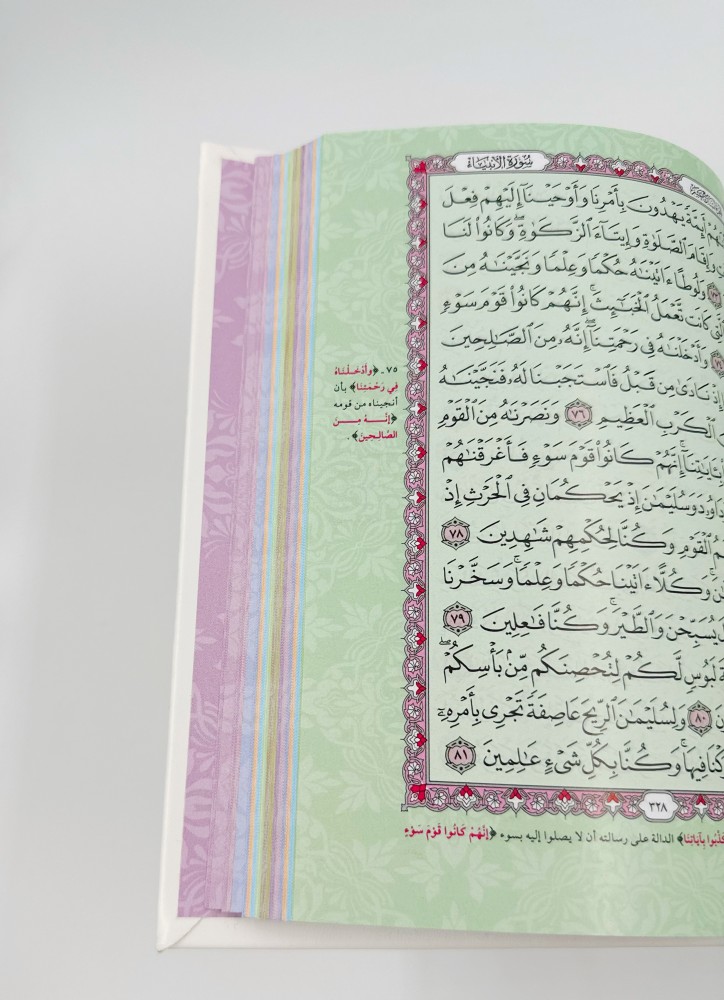 سُورَةُ الْأَنْبِيَاءِ
أَئِمَّةً يَهْدُونَ بِأَمْرِنَا وَأَوْحَيْنَآ إِلَيْهِمْ فِعْلَ
وَإِقَامَ ٱلصَّلَوٰةِ وَإِيتَآءَ ٱلزَّكَوٰةِ ۖ وَكَانُوا۟ لَنَا
وَلُوطًا ءَاتَيْنَٰهُ حُكْمًا وَعِلْمًا وَنَجَّيْنَٰهُ مِنَ
كَانَت تَّعْمَلُ ٱلْخَبَٰٓئِثَ ۗ إِنَّهُمْ كَانُوا۟ قَوْمَ سَوْءٍ
وَأَدْخَلْنَٰهُ فِى رَحْمَتِنَآ ۖ إِنَّهُۥ مِنَ ٱلصَّٰلِحِينَ
إِذْ نَادَىٰ مِن قَبْلُ فَٱسْتَجَبْنَا لَهُۥ فَنَجَّيْنَٰهُ
ٱلْكَرْبِ ٱلْعَظِيمِ ٧٦ وَنَصَرْنَٰهُ مِنَ ٱلْقَوْمِ
إِنَّهُمْ كَانُوا۟ قَوْمَ سَوْءٍ فَأَغْرَقْنَٰهُمْ
وَسُلَيْمَٰنَ إِذْ يَحْكُمَانِ فِى ٱلْحَرْثِ إِذْ
ٱلْقَوْمِ وَكُنَّا لِحُكْمِهِمْ شَٰهِدِينَ ٧٨
وَكُلًّا ءَاتَيْنَا حُكْمًا وَعِلْمًا ۚ وَسَخَّرْنَا
يُسَبِّحْنَ وَٱلطَّيْرَ ۚ وَكُنَّا فَٰعِلِينَ ٧٩
لَبُوسٍ لَّكُمْ لِتُحْصِنَكُم مِّنۢ بَأْسِكُمْ ۖ
٨٠ وَلِسُلَيْمَٰنَ ٱلرِّيحَ عَاصِفَةً تَجْرِى بِأَمْرِهِۦٓ
فِيهَا ۚ وَكُنَّا بِكُلِّ شَىْءٍ عَٰلِمِينَ ٨١
٣٢٨
٧٥ - ﴿وَأَدْخَلْنَاهُ
فِي رَحْمَتِنَا﴾ بأن
أنجيناه من قومه
﴿إِنَّهُ مِنَ
الصَّالِحِينَ﴾ .
كَذَّبُوا بِآيَاتِنَا﴾ الدالة على رسالته أن لا يصلوا إليه بسوء ﴿إِنَّهُمْ كَانُوا قَوْمَ سَوْءٍ